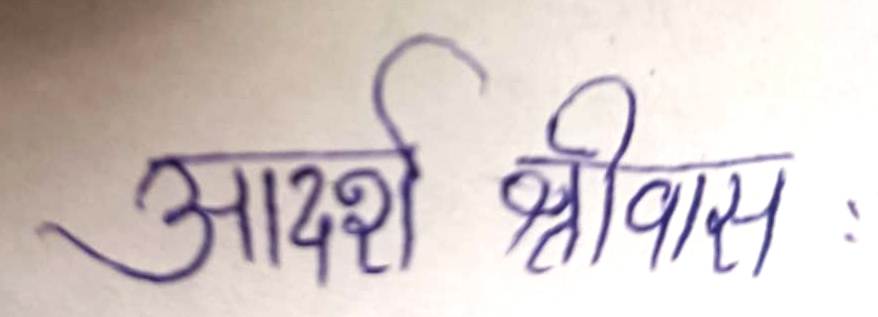 आदर्श श्रीवास :